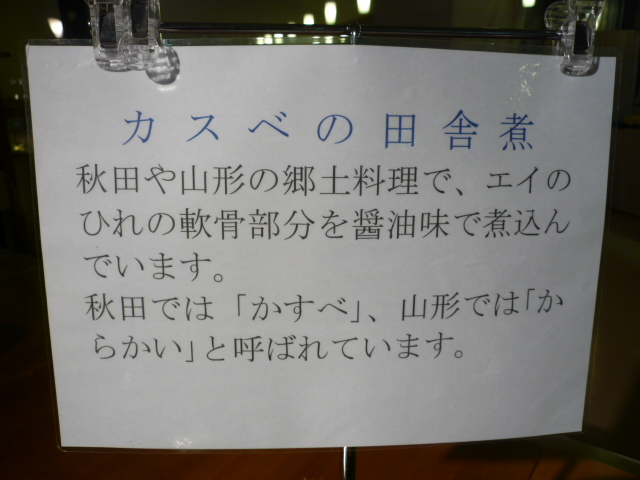 カスベの田舎煮
秋田や山形の郷土料理で、エイの
ひれの軟骨部分を醤油味で煮込ん
でいます。
秋田では「かすべ」、山形では「か
らかい」と呼ばれています。